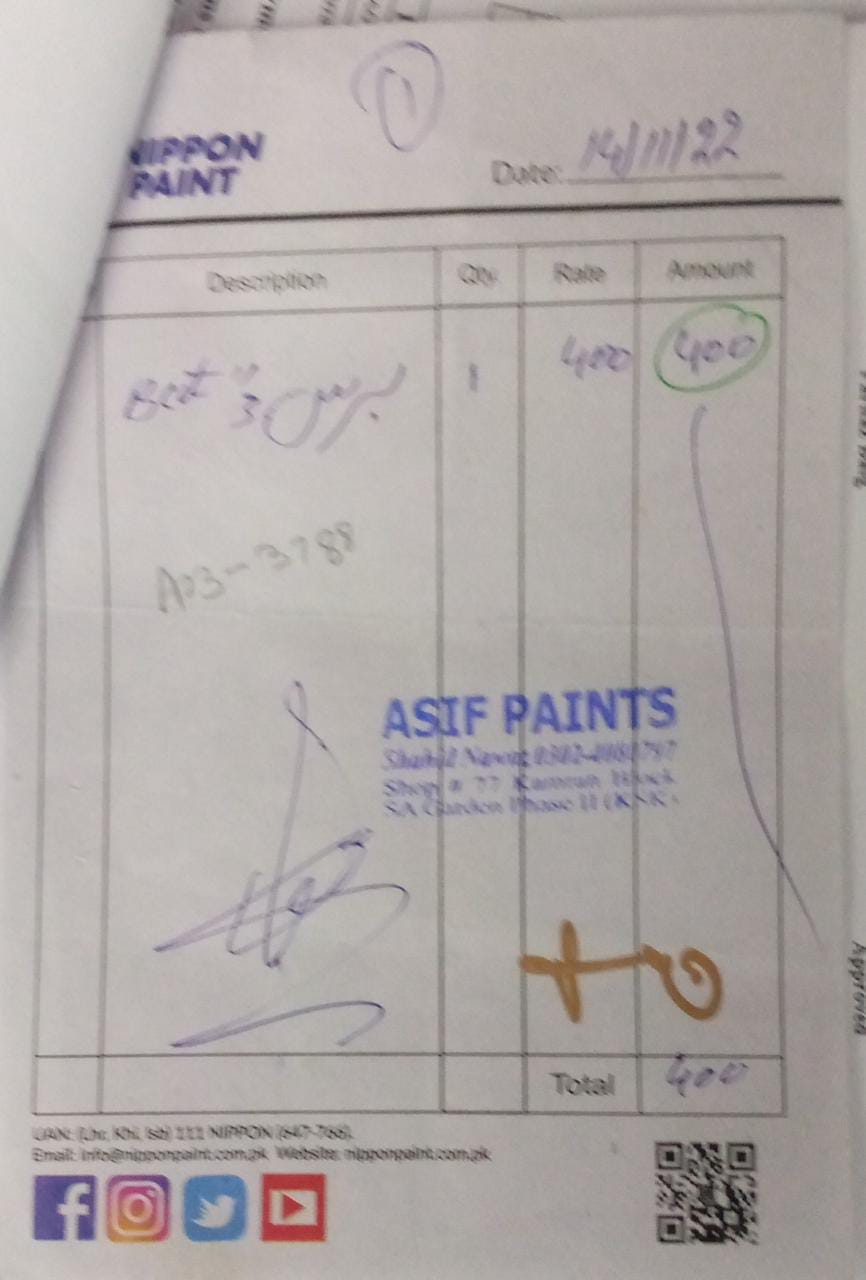 1
NIPPON
PAINT
Date: 14/11/22
Description Qty Rate Amount
Best 3" برش 1 400 400
A03-3788
ASIF PAINTS
Shahid Nawaz
Shop # 77 Kamran Block
SA Garden Phase II (KSK)
Total 400
UAN: (Lhr, Khi, Isb) 111 NIPPON (647-766).
Email: info@nipponpaint.com.pk Website: nipponpaint.com.pk
Approved